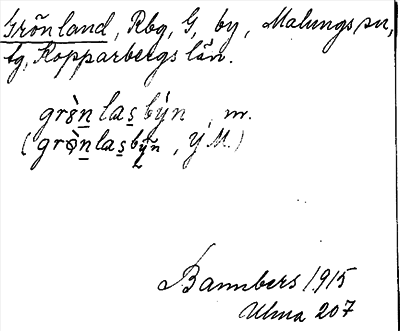 Grönland, Rbg, G, by, Malungs sn,
tg, Kopparbergs län.
grö̀n̲las̲býn, m.
(grø̀n̲las̲býn, yM.)
Bannbers 1915
Ulma 207